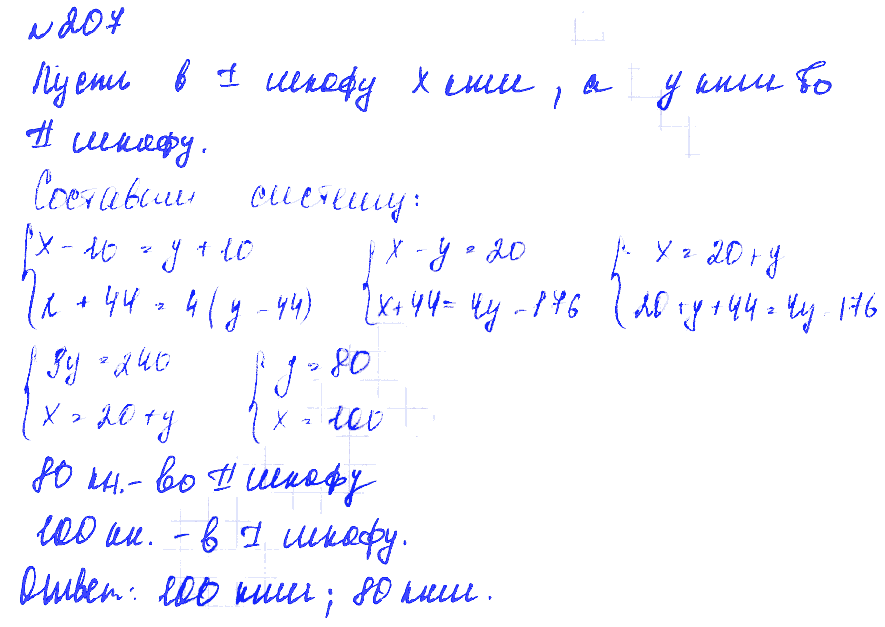 №207
Пусть в I шкафу x книг, а y книг во
II шкафу.
Составим систему:
{x - 10 = y + 10 {x - y = 20 {x = 20 + y
{x + 44 = 4(y - 44) {x + 44 = 4y - 176 {20 + y + 44 = 4y - 176
{3y = 240 {y = 80
{x = 20 + y {x = 100
80 кн. - во II шкафу
100 кн. - в I шкафу.
Ответ: 100 книг; 80 книг.